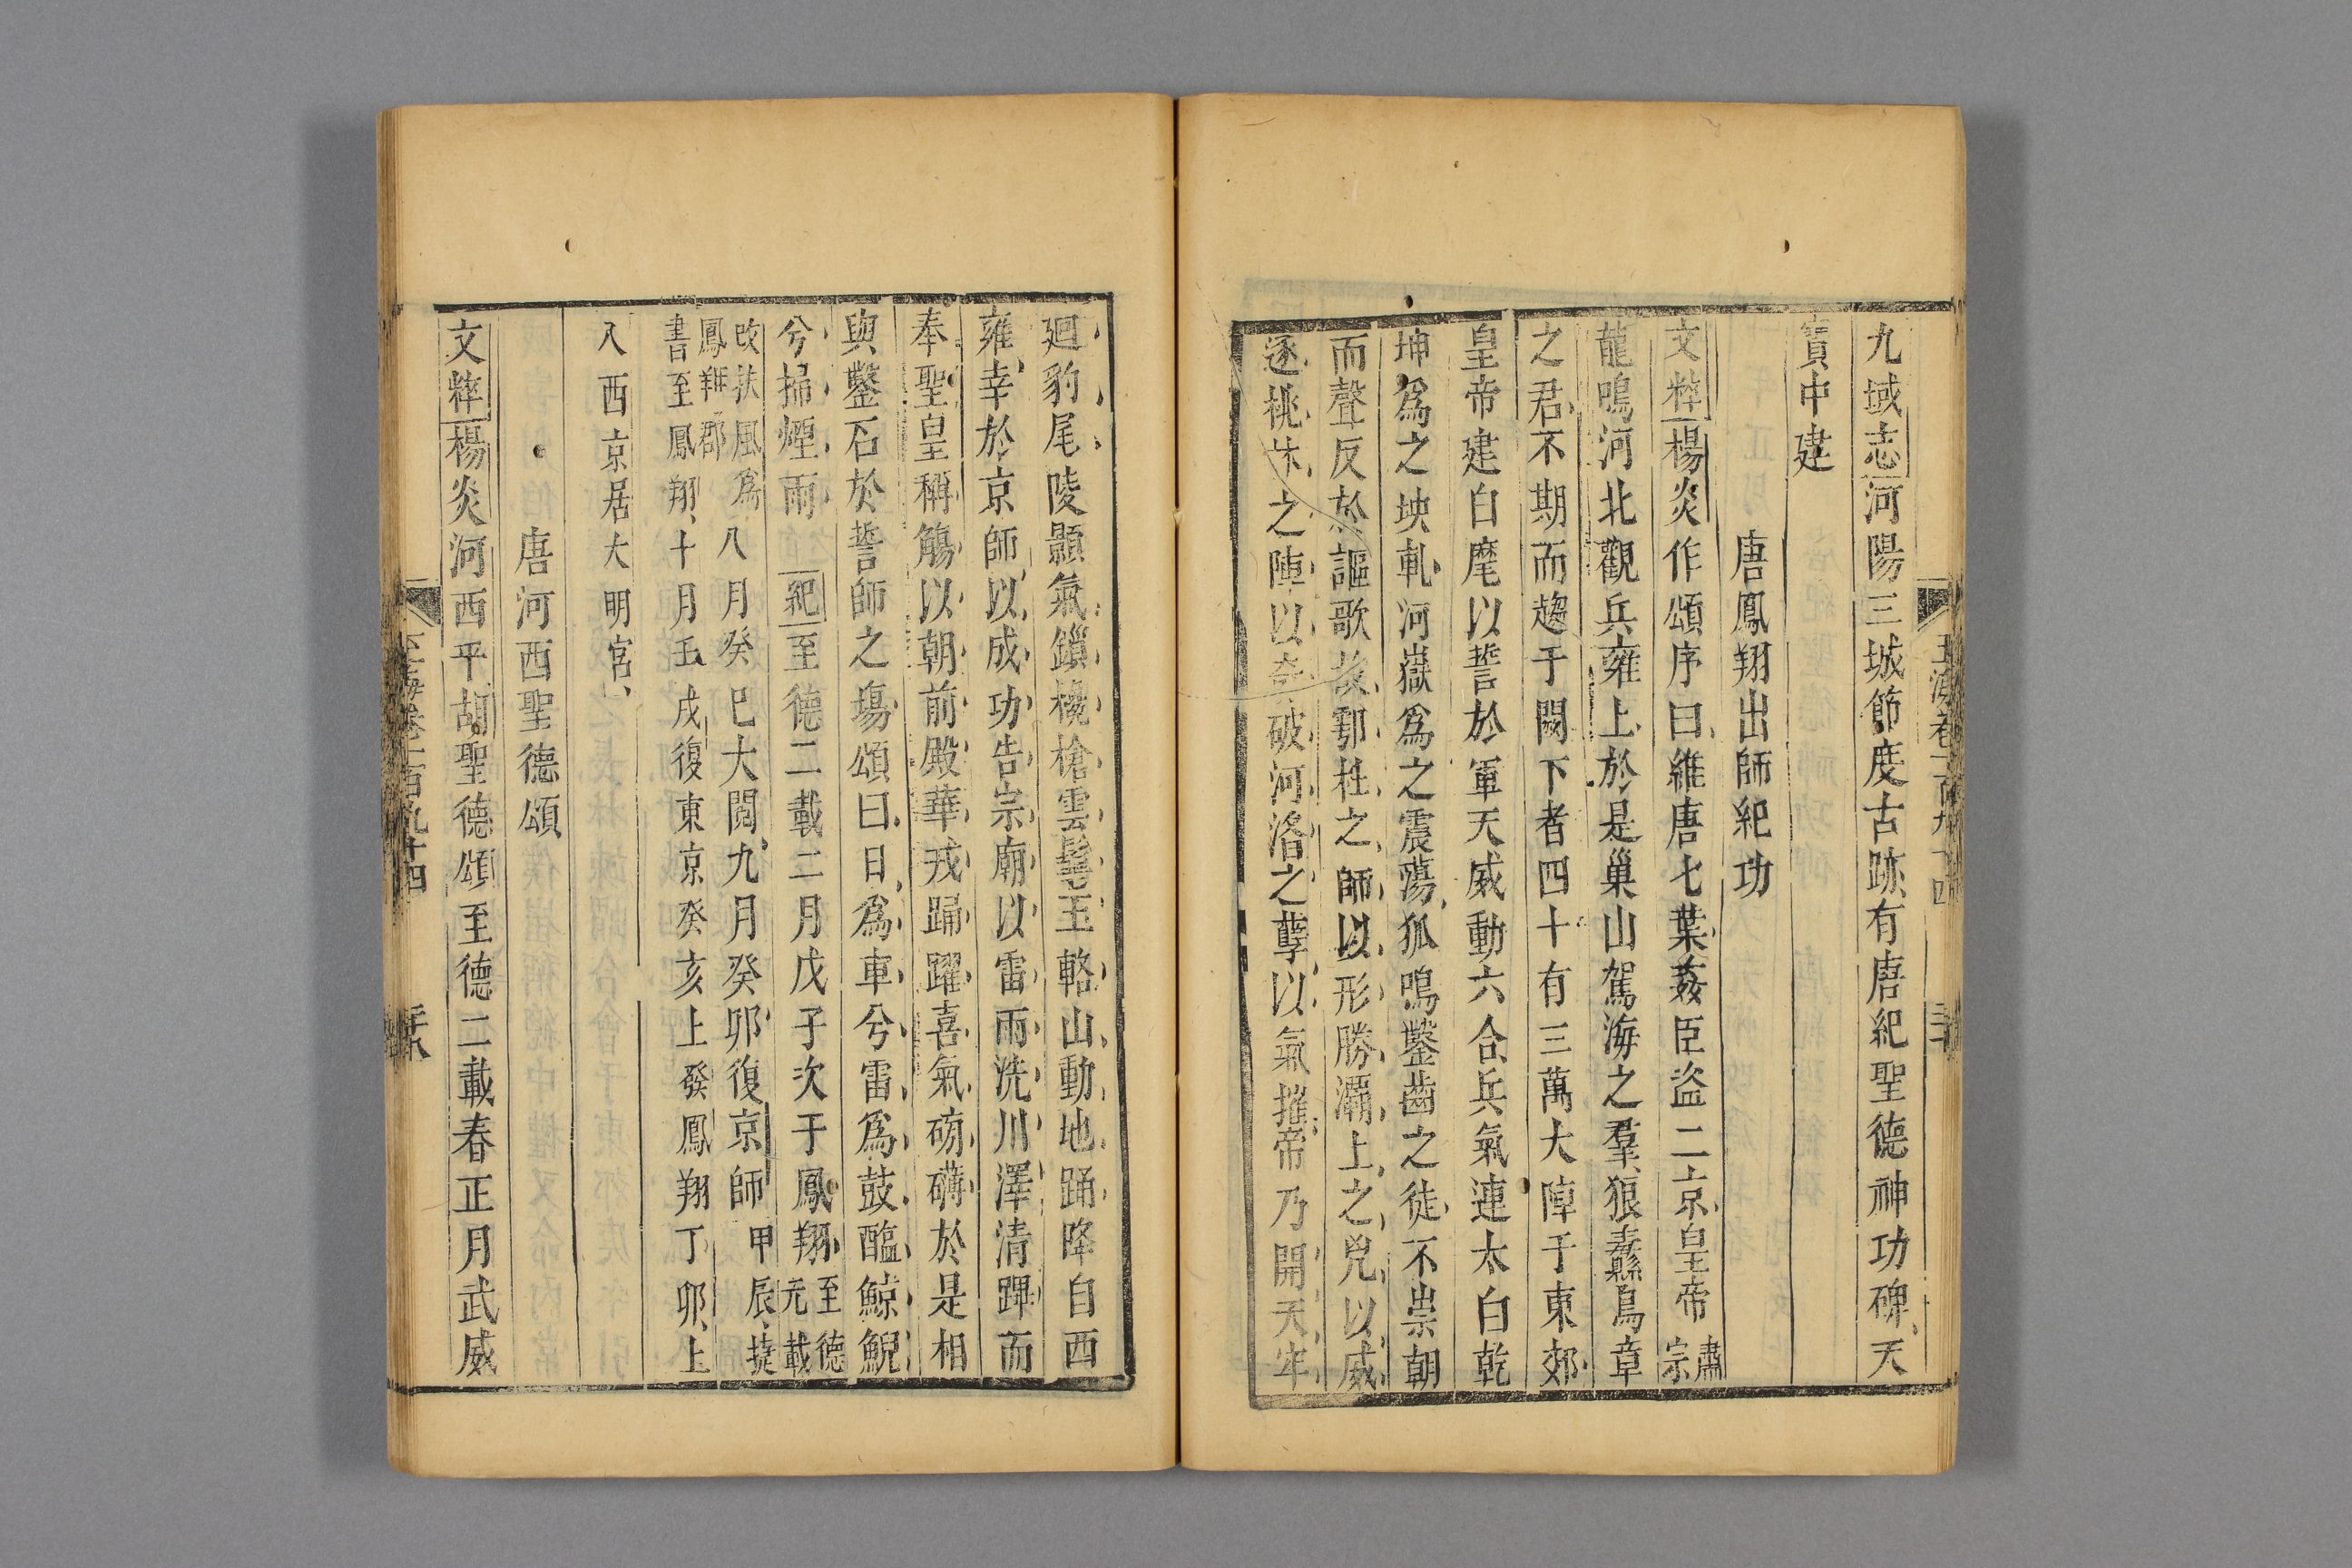 九域志河陽三城節度古跡有唐紀聖德神功碑天
寶中建
唐鳳翔出師紀功
文粹楊炎作頌序曰維唐七葉姦臣盜二京皇帝肅宗
龍鳴河北觀兵雍上於是巢山駕海之羣狼纛鳥章
之君不期而趨于闕下者四十有三萬大陣于東郊
皇帝建白麾以誓於軍天威動六合兵氣連太白乾
坤爲之坱軋河嶽爲之震蕩狐鳴鑿齒之徒不崇朝
而聲反於謳歌故鄠杜之師以形勝灞上之兇以威
逐桃林之陣以奇破河洛之孽以氣摧帝乃開天牢
廻豹尾陵顥氣鎖欃槍雲髦玉輅山動地踊降自西
雍幸於京師以成功告宗廟以雷雨洗川澤清蹕而
奉聖皇稱觴以朝前殿華戎踊躍喜氣磅礴於是相
與鑿石於誓師之場頌曰日爲車兮雷爲鼓醢鯨鯢
兮掃煙雨紀至德二載二月戊子次于鳳翔至德元載
改扶風爲鳳翔郡八月癸巳大閱九月癸卯復京師甲辰捷
書至鳳翔十月壬戌復東京癸亥上發鳳翔丁卯上
入西京居大明宮
唐河西聖德頌
文粹楊炎河西平胡聖德頌至德二載春正月武威
玉海卷一百九十四
玉海卷一百九十四